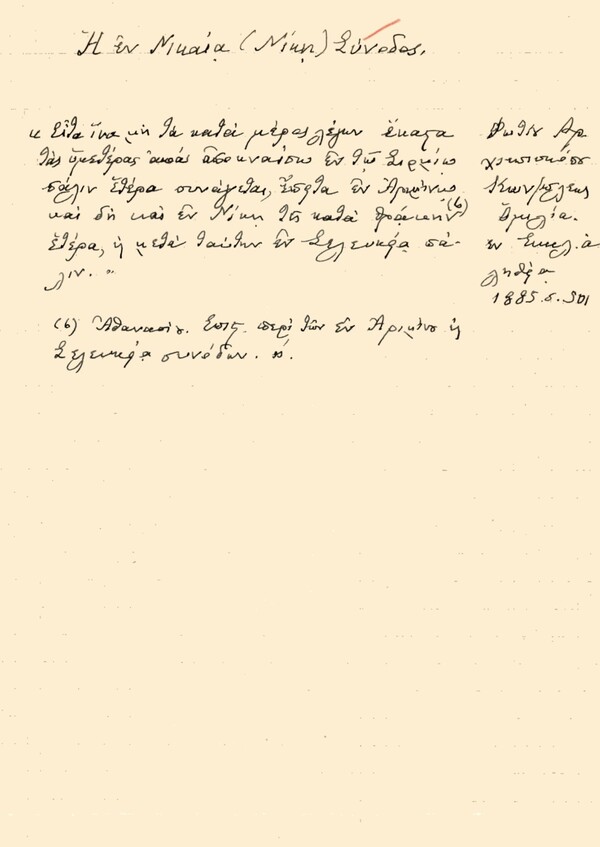 Ἡ ἐν Νικαίᾳ (Νίκῃ) Σύνοδος.
« Εἶτα ἵνα μὴ τὰ κατὰ μέρος λέγων ἕκαστα
τὰς ὑμετέρας ἀκοὰς ἀποκναίσω ἐν τῷ Σιρμίῳ
πάλιν ἑτέρα συνάγεται, ἔπειτα ἐν Ἀριμήνῳ
καὶ δὴ καὶ ἐν Νίκῃ τῆς κατὰ Θρᾴκην (6)
ἑτέρα, ἡ μετὰ ταύτην ἐν Σελευκείᾳ πά-
λιν. »
Φωτίου Ἀρ
χιεπισκόπου
Κων/πόλεως
Ὁμιλία.
ἐν Ἐκκλ. Ἀ
ληθείᾳ
1885. σ. 301
(6) Ἀθανασίου. Ἐπιστ. περὶ τῶν ἐν Ἀριμήνῳ ἡ
Σελευκείᾳ συνόδων.